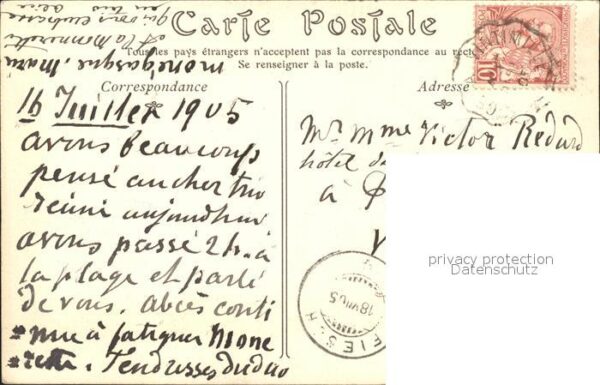 qui vous embrasse
en bis
Carte Postale
et la Monnerette
Tous les pays étrangers n'acceptent pas la correspondance au recto
monégasque. Mary
Se renseigner à la poste.
Correspondance
Adresse
16 Juillet 1905
avons beaucoup
pensé au cher trio
réuni aujourdhui
avons passé 2h. à
la plage et parlé
de vous. abcès conti
nue à fatiguer Mone
rette. Tendresses du duo
10
Mr. Mme Victor Redard
hôtel de
à
V
FIESCH
18 VII 05
privacy protection
Datenschutz